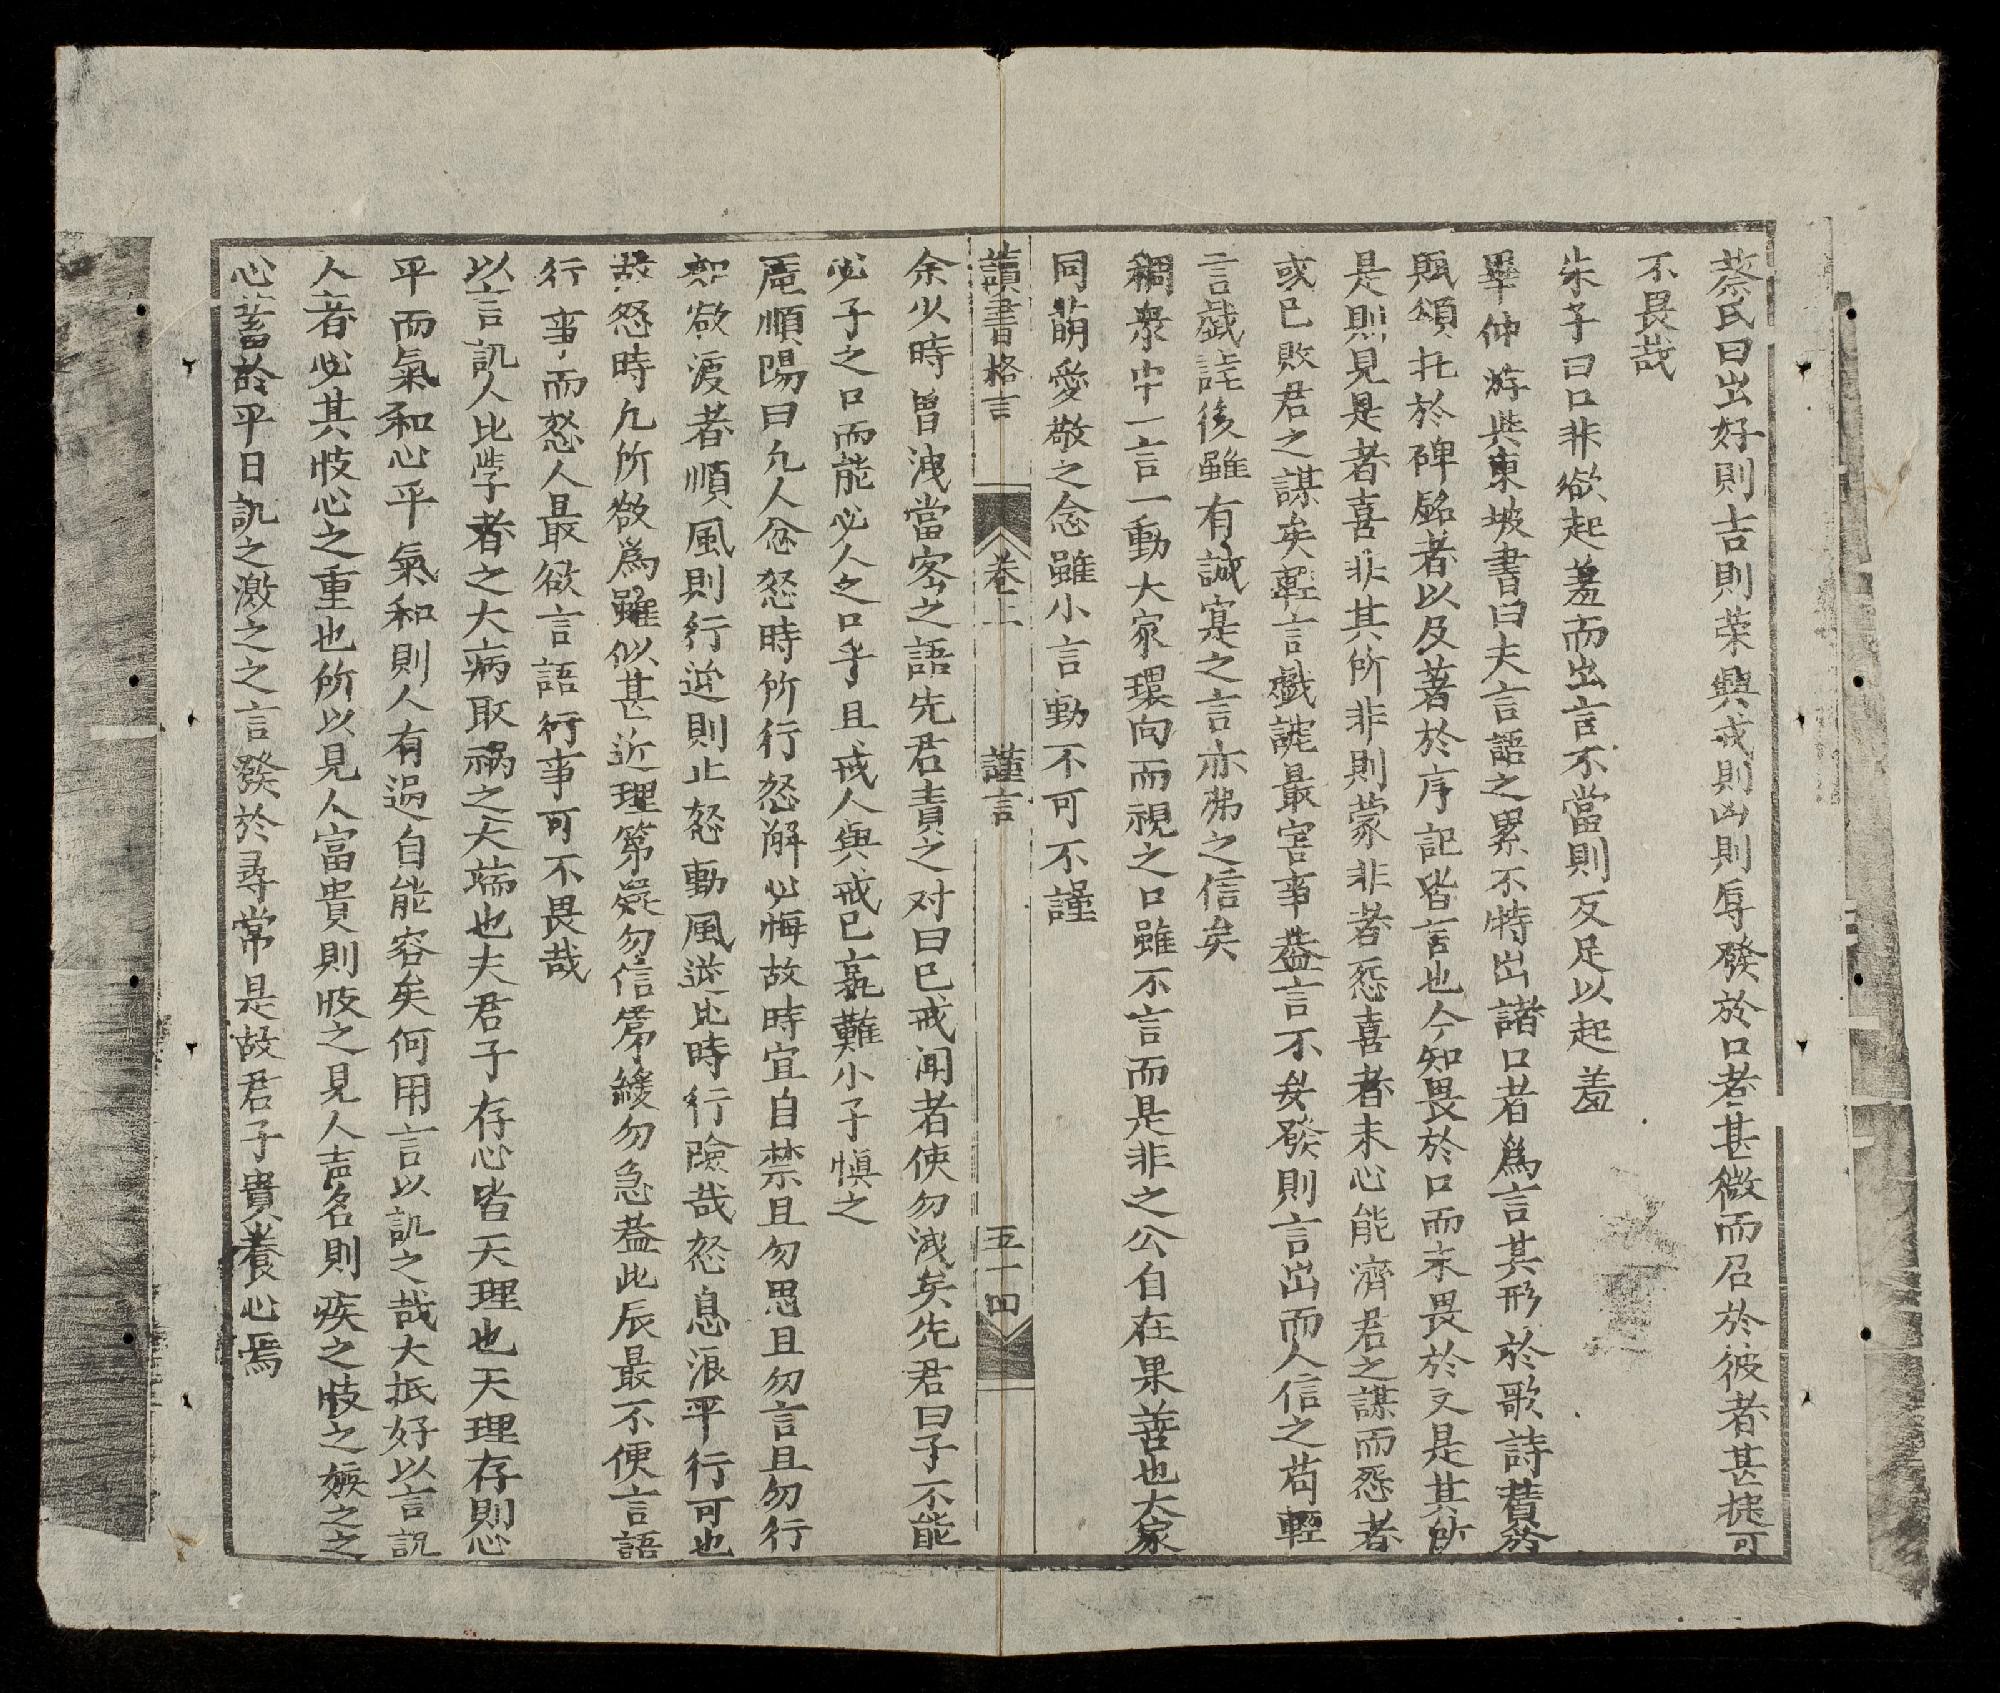 蔡氏曰出好則吉則荣興戎則凶則辱發於口者甚微而召於彼者甚捷可
不畏哉
朱子曰口非欲起羞而出言不當則反足以起羞
畢仲游與東坡書曰夫言語之累不特出諸口者爲言其形於歌詩賛於
賦頌托於碑銘者以及著於序記皆言也今知畏於口而未畏於文是其所
是則見是者喜非其所非則蒙非者怨喜者未心能濟君之謀而怨者
或已敗君之謀矣輕言戲謔最害事葢言不矣發則言出而人信之苟輕
言戲謔後雖有誠寔之言亦弗之信矣
稠衆中一言一動大家環向而視之口雖不言而是非之公自在果善也大家
同萌愛敬之念雖小言動不可不謹
讀書格言 卷上 謹言 五十四
余少時曾洩當客之語先君責之对曰已戒闻者使勿洩矣先君曰子不能
必子之口而能必人之口乎且戒人與戒已孰難小子慎之
厖順陽曰凢人忿怒時所行怒解必悔故時宜自禁且勿思且勿言且勿行
如欲渡者順風則行逆則止怒動風逆比時行險哉怒息浪平行可也
故怒時凢所欲爲雖似甚近理第疑勿信第緩勿急葢此辰最不便言語
行事而怒人最欲言語行事可不畏哉
以言訊人比學者之大病取祸之大端也夫君子存心皆天理也天理存則心
平而氣和心平氣和則人有過自能容矣何用言以訊之哉大抵好以言訊
人者必其忮心之重也所以見人富貴則忮之見人声名則疾之忮之嫉之之
心蓄於平日訊之激之之言發於尋常是故君子貴養心焉